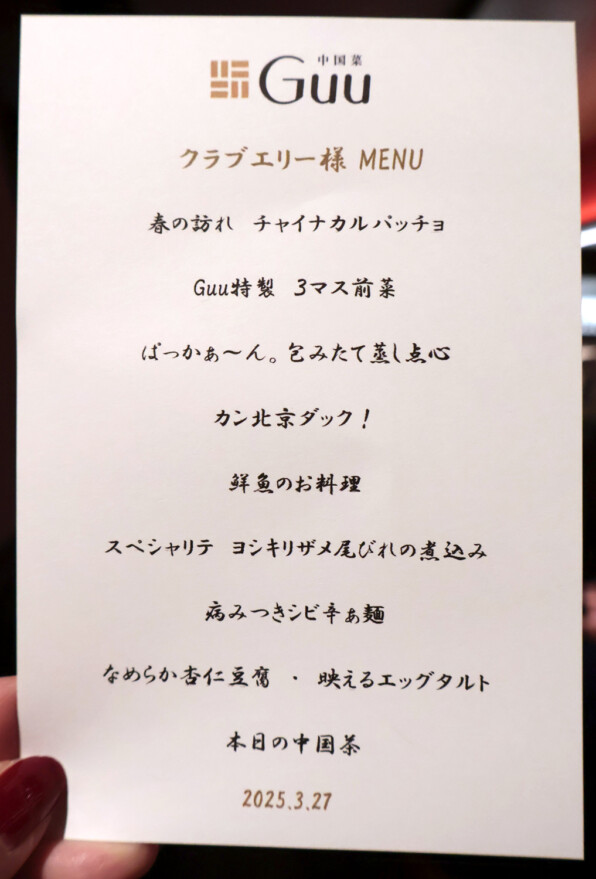 中国菜
Guu
クラブエリー様 MENU
春の訪れ チャイナカルパッチョ
Guu特製 3マス前菜
ぱっかぁ〜ん。包みたて蒸し点心
カン北京ダック!
鮮魚のお料理
スペシャリテ ヨシキリザメ尾びれの煮込み
病みつきシビ辛ぁ麺
なめらか杏仁豆腐 ・ 映えるエッグタルト
本日の中国茶
2025.3.27